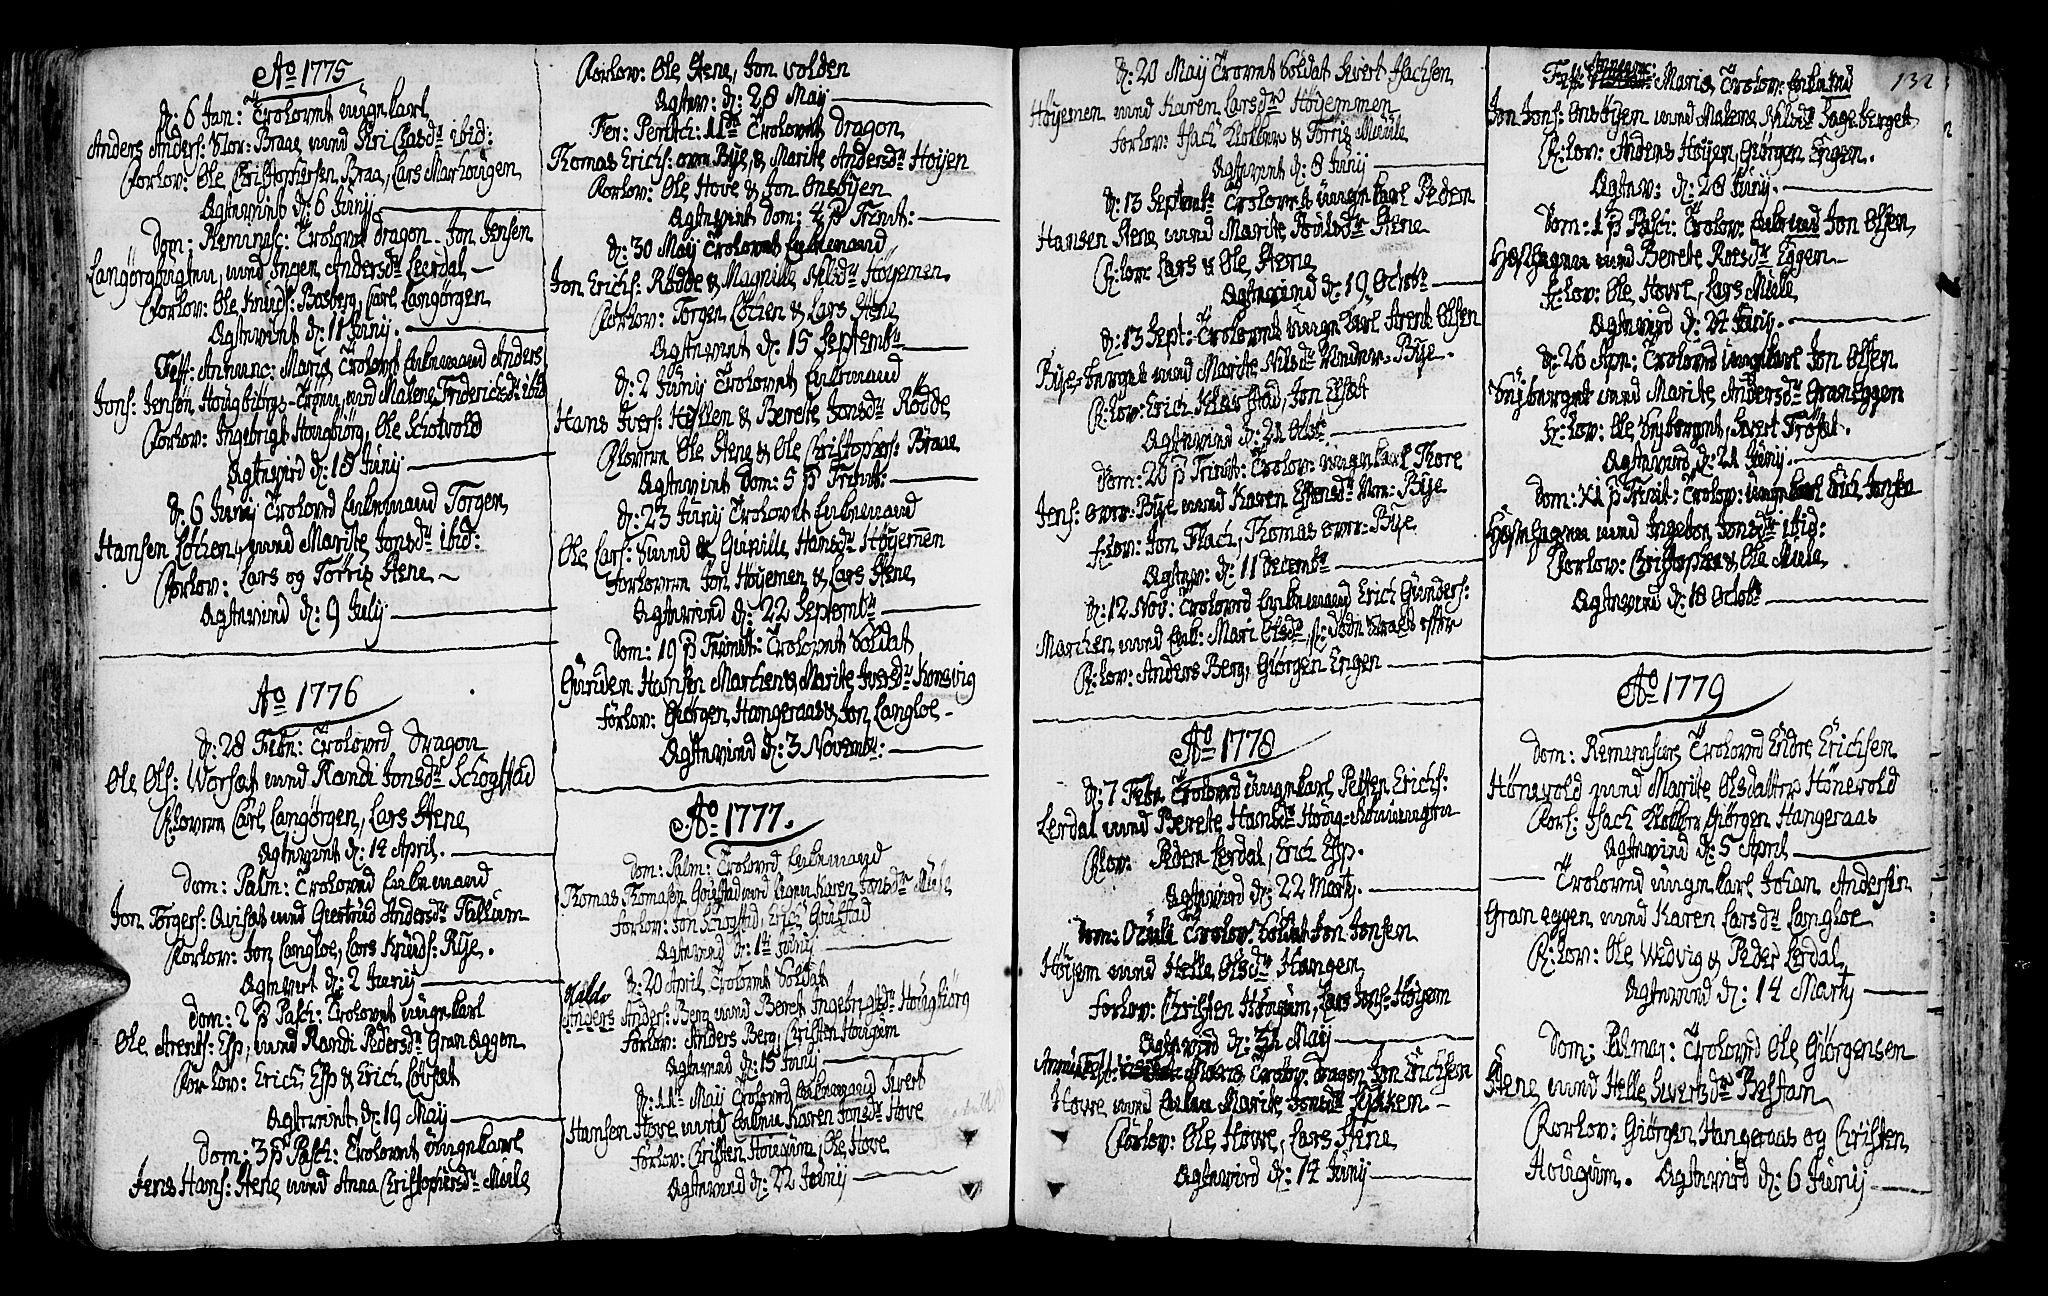 Ao 1775
d: 6 Jan: Trolovet ungkarl
Anders Anders: Stor: Braae med Siri Olsdr ibid:
Forlov: Ole Christophersen Braa, Lars Marhougen
Ægteviet d: 6 Junij
Dom: Reminisc: Trolovet dragon Jon Jensen
Langørgvogten med Ingen Andersdr Leerdal
Forlov: Ole Knuds: Bosberg, Carl Langørgen
Ægteviet d: 11 Junij.
Fest: Annunc: Mariæ Trolovet Enkemand Anders
Jons: Jensen Hougbiørgs-Trøen med Malene Friderichsdr ibid
Forlov: Ingebrigt Hougbiørg, Ole Schotvold
Ægtevied d: 18 Junij
d: 6 Junij Trolovd Enkemand Torgen
Hansen Løchen, med Marite Jonsdr ibid:
Forlov: Lars og Torris Stene
Ægteviend d: 9 Julij
Ao 1776
d: 28 Febr: Trolovd dragon
Ole Ols: Worset med Randi Jonsdr Schogstad
F:lovere Carl Langørgen, Lars Stene
Ægteviet d: 14 April.
Dom: Palm: Trolovd Enkemand
Jon Torgers: Qviset med Giertrud Andersdr Fallium
Forlov: Jon Langloe, Lars Knuds: Rye.
Ægteviet d: 2 Junij
Dom: 2 p Pasch: Trolovet ungkarl
Ole Arents: Esp, med Randi Pedersdr Graneggen
Forlov: Erich Esp & Erich Løvset
Ægteviet d: 19 Maij
Dom: 3 p Pasch: Trolovet ungkarl
Jens Hans: Stene med Anna Christophersdr Meile
Forlov: Ole Stene, Jon volden
Ægtev: d: 28 Maij
Fer: Pentec: 11de Trolovet dragon
Thomas Erichs: ovre Bye, & Marite Andersdr Høyen
Forlov: Ole Hove & Jon Onsøyen
Ægteviet Dom: 4 p Trinit:
d: 30 Maij Trolovet Enkemand
Jon Erichs: Rødde & Magnille Nilsdr Høyemen
Forlov: Torgen Løchen & Lars Stene
Ægteviet d: 15 Septembr
d: 2 Junij Trolovet Enkemand
Hans Ivers: Hyllen & Berete Jonsdr Rødde
F:lovere Ole Stene & Ole Christophers: Braae
Ægteviet Dom: 5 p Trinit:
d: 23 Junij Trolovet Enkemand
Ole Lars: Svend & Gunille Hansdr Høyemen
Forlovere Jon Høyemen & Lars Stene
Ægteviend d: 22 Septembr
Dom: 19 p Trinit: Trolovet Soldat
Gunden Hansen Marchen & Marite Iversdr Konsvig
Forlov: Giørgen Hangeraas & Jon Langloe
Ægteviend d: 3 Novembr:
Ao 1777.
Dom: Palm: Trolovd Enkemand
Thomas Thomasen Grustad med Karen Jonsdr Mule
Forlov: Jon Schogstad, Erich Grustad
Ægteviend d: 14 Junij
d: 20 April Trolovet Soldat
Haldo
Anders Anders: Berg med Beret Ingebrigtsdr Hougbiørg
Forlov: Anders Berg, Christen Hougum
Ægteviend d: 15 Junij
d: 11te Maij Trolovd Enkemand Sivert
Hansen Hove med Enken Karen Jonsdr Hove
Forlov: Christen Hougum, Ole Hove
Ægteviend d: 22 Junij
d: 20 Maij Trolovet Soldat Sivert Isachsen
Høyemen med Karen Larsdr Høyemmen
Forlov: Isach Klokker & Torris Meule
Ægteviet d: 8 Junij
d: 13 Septembr Trolovet ungkarl Peder
Hansen Stene med Marite Poulsdr Stene
F:lov: Lars & Ole Stene
Ægteviend d: 19 Octobr
d: 13 Sept: Trolovet ungkarl Arent Olsen
Byesberget med Marite Nilsdr Neder-Bye.
F:lov: Erich Klefstad, Jon Elset
Ægteviend d: 21 Octbr
Dom: 20 p Trinit: Trolov: ungkarl Thore
Jens: over: Bye med Karen Estensdr Ner: Bye
F:lov: Jon Flach, Thomas over: Bye
Ægtev: d: 11 Decembr
d: 12 Nov: Trolovd Enkemand Erich Gunders:
Marchen med Enk: Mari Olsdr, efter
F:lov: Anders Berg, Giørgen Engen
Ao 1778
d: 7 Febr Trolovd ungkarl Petter Erichs:
Lerdal med Berete Hansdr Houg
F:lov: Peder Lerdal, Erich Esp.
Ægteviend d: 22 Martij.
Dom: Oculi Trolov: Soldat Jon Jonsen
Høyem med Helle Olsdr Hangen
Forlov: Christen Hougum, Lars Jons: Høyem
Ægteviend d: 31 Maij
Fest: Mariæ Trolov: dragon Jon Erichsen
Hovve med Enken Marite Jonsdr Sykken
Forlov: Ole Hovve, Lars Stene
Ægteviend d: 14 Junij
132
Fest: Annunc: Mariæ Trolov: Enkemand
Jon Jons: Onsøyen med Malene Nilsdr Fageberget
F:lov: Anders Høyen, Giørgen Engen.
Ægtev: d: 28 Junij.
Dom: 1 p Pasch: Trolov: Enkemand Jon Olsen
Høsthagen med Berete Roesdr Eggen
F:lov: Ole Hovve, Lars Meule
Ægteviend d: 24 Junij.
d: 26 Apr: Trolovd ungkarl Jon Olsen
Vuyberget med Marite Andersdr Graneggen
F:lov: Ole Vuyberget, Sivert Trøset.
Ægteviend d: 21 Junij.
Dom: XI p Trinit: Trolov: ungkarl Erich Jonsen
Høsthagen med Ingebor Jonsdr ibid:
Forlov: Christopher & Ole Meule
Ægteviend d: 18 Octobr
Ao 1779
Dom: Reminiscere Trolovd Endre Erichsen
Hønevold med Marite Olsdatter Hønevold
Forl: Isach Klokker Giørgen Hangeraas
Ægteviend d: 5 April
Trolovd ungkarl Johan Andersen
Graneggen med Karen Larsdr Langloe
F:lov: Ole Wedvig & Peder Lerdal
Ægteviend d: 14 Martij
Dom: Palmar: Trolovd Ole Giørgensen
Stene med Helle Sivertsdr Bestan
Forlov: Giørgen Hangeraas og Christen
Hougum. Ægteviend d: 6 Junij